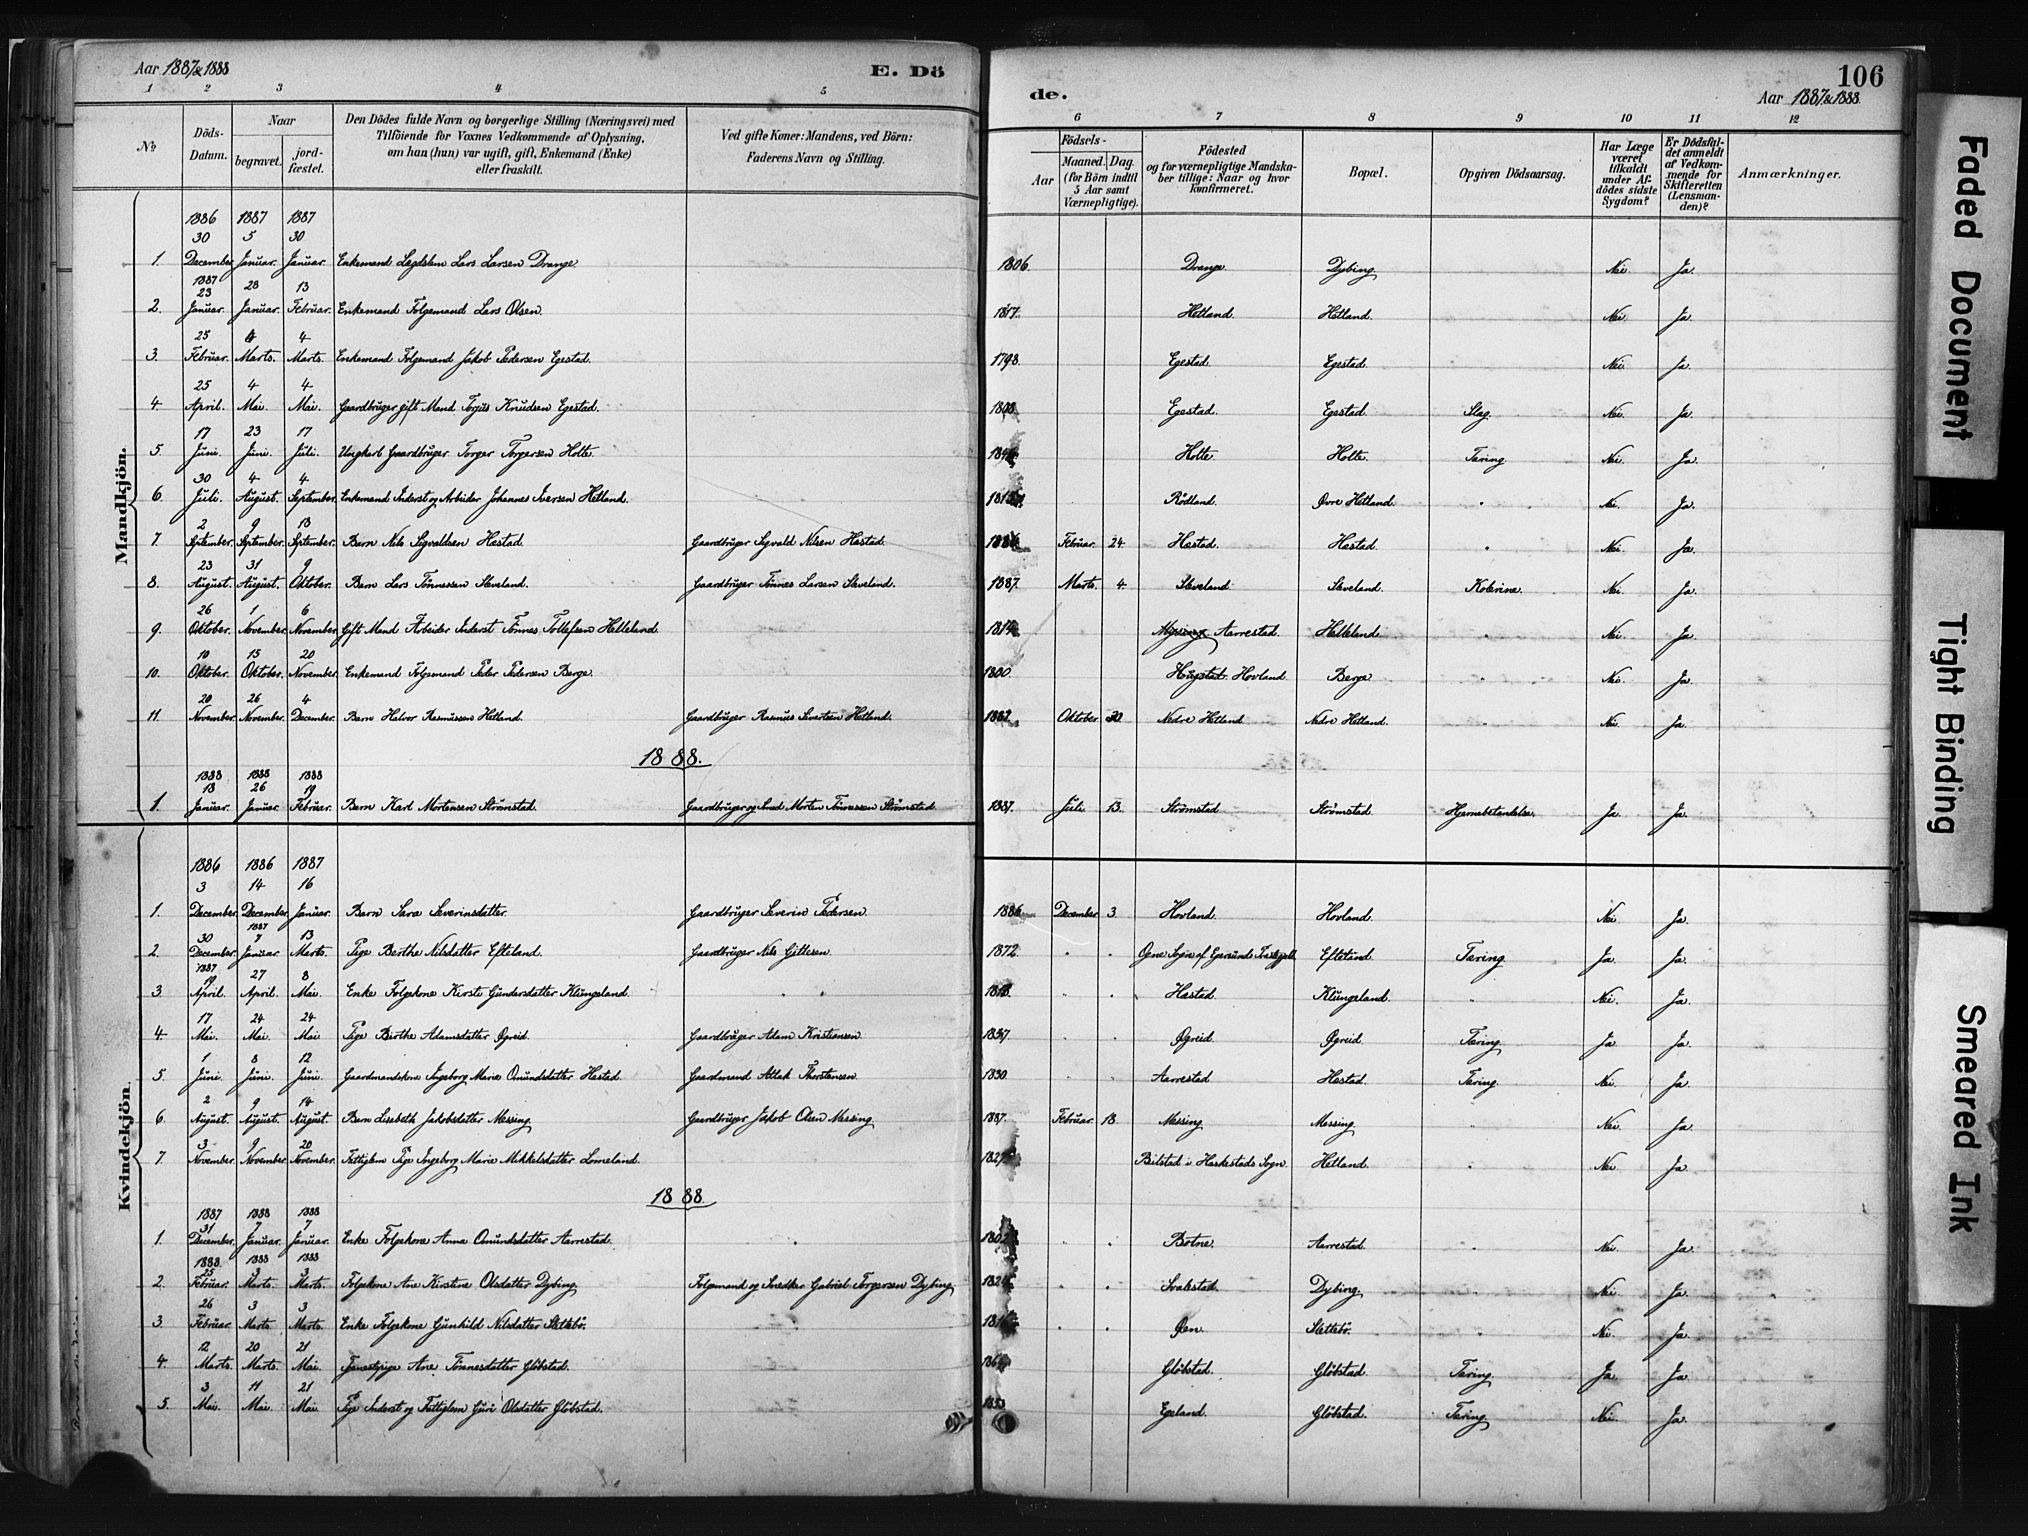 Aar 1887 & 1888
E. Dö
de.
106
Aar 1887 & 1888.
1 2 3 4 5 6 7 8 9 10 11 12
No
Döds-Datum.
Naar
begravet.
jord-fæstet.
Den Dödes fulde Navn og borgerlige Stilling (Næringsvei) med
Tilföiende for Voxnes Vedkommende af Oplysning,
om han (hun) var ugift, gift, Enkemand (Enke)
eller fraskilt.
Ved gifte Koner: Mandens, ved Börn:
Faderens Navn og Stilling.
Födsels-
Aar
Maaned. Dag.
(for Börn indtil
5 Aar samt
Værnepligtige).
Födested
og for værnepligtige Mandska-
ber tillige: Naar og hvor
konfirmeret.
Bopæl.
Opgiven Dödsaarsag.
Har Læge
været
tilkaldt
under Af-
dödes sidste
Sygdom?
Er Dödsfal-
det anmeldt
af Vedkom-
mende for
Skifteretten
(Lensman-
den)?
Anmærkninger.
Mandkjön.
1886 1887 1887
30 5 30
1. December. Januar. Januar. Enkemand Lægdslem Lars Larsen Drange. 1806. Drange Dybing Nei Ja.
1887
23 28 13
2. Januar. Januar. Februar. Enkemand Folgemand Lars Olsen. 1817. Hetland. Hetland. Nei. Ja
25 4 4
3. Februar. Marts. Marts. Enkemand Folgemand Jakob Pedersen Egestad. 1798. Egestad. Egestad. Nei. Ja.
25 4 4
4. April. Mai. Mai. Gaardbruger gift Mand Torjus Knudsen Egestad. Egestad. Egestad. Slag. Nei. Ja.
17 23 17
5 Juni. Juni. Juli. Ungkarl Gaardbruger Torger Torgersen Holte. Holte. Holte. Tæring Nei. Ja.
30 4 4
6. Juli. August. September. Enkemand Inderst og Arbeider Johannes Iversen Hetland. Rödland. Øvre Hetland. " Nei. Ja.
2 9 13
7 September. September. September. Barn Nils Sigvaldsen Hæstad. Gaardbruger Sigvald Nilsen Hæstad. Februar. 24. Hæstad. Hæstad " Nei. Ja.
23 31 9
8. August. August. Oktober. Barn Lars Tönnessen Sleveland. Gaardbruger Tönnes Larsen Sleveland. 1887. Marts. 4. Sleveland Sleveland. Kolerine. Nei. Ja.
26 1 6
9. Oktober. November. November. Gift Mand Arbeider Inderst Tönnes Tollefsen Helleland. Aarrestad. Helleland. " Nei. Ja
10 15 20
10. Oktober. Oktober. November. Enkemand Folgemand Peder Pedersen Berge. 1800. Hovland. Berge " Nei. Ja.
20 26 4
11. November. November. December. Barn Halvor Rasmussen Hetland. Gaardbruger Rasmus Sivertsen Hetland. Oktober. 30. Nedre Hetland Nedre Hetland. " Nei Ja
1888.
1888 1888 1888
18 26 19
1. Januar. Januar. Februar. Barn Karl Mortensen Strömstad. Gaardbruger og Smed Morten Tönnessen Strömstad 1887. Juli. 13. Strömstad Strömstad. Hjernebetændelse. Ja. Ja.
Kvindekjön.
1886 1886 1887
3 14 16
1. December. December. Januar. Barn Sara Severinsdatter. Gaardbruger Severin Pedersen. 1886 December 3. Hovland. Hovland. Nei Ja.
30 1887 7 13
2. December. Januar. Marts. Pige Berthe Nilsdatter Efteland. Gaardbruger Nils Gittesen. 1872. Ogne Sogn af Egersunds Præstegjæld. Efteland Tæring. Ja. Ja.
1887
19 27 8
3. April. April. Mai. Enke Folgekone Kirsti Gundersdatter Klungeland. " Hæstad. Klungeland. " Nei. Ja.
17 24 24
4. Mai. Mai. Mai Pige Berthe Adamsdatter Øgreid. Gaardbruger Adam Kristiansen 1837. Øgreid. Øgreid. Tæring. Ja Ja.
1 8 12
5. Juni. Juni. Juni. Gaardmandskone Ingeborg Maria Omundsdatter Hæstad. Gaardmand Atlak Thorstensen. 1830. Aarrestad Hæstad Tæring. Nei. Ja.
2 9 14
6. August. August. August. Barn Lisebeth Jakobsdatter Messing. Gaardbruger Jakob Olsen Messing. 1887. Februar. 18. Messing Messing. " Nei. Ja.
3 9 20
7. November. November. November. Fattiglem Pige Ingeborg Maria Mikkelsdatter Lomeland. Bilstad i Heskestads Sogn. Hetland. " Nei Ja
1888.
1887 1888 1888
31 7 7
1. December. Januar. Januar. Enke Folgekone Anna Omundsdatter Aarrestad. " Botne. Aarrestad. " Nei. Ja.
1888. 1888 1888
25 3 3
2. Februar. Marts. Marts. Folgekone Ane Kirstine Olsdatter Dybing. Folgemand og Snedker Gabriel Torgersen Dybing Svalestad. Dybing. " Nei Ja.
26 3 3
3. Februar. Marts. Marts. Enke Folgekone Gunhild Nilsdatter Slettebö. Øen. Slettebö. " Nei. Ja
12 20 21
4. Marts. Marts. Mai. Tjenestepige Ane Tönnesdatter Glöbstad. Glöbstad. Glöbstad. Tæring. Ja Ja.
3 11 21
5. Mai. Mai. Mai. Pige Inderst og Fattiglem Guri Olsdatter Glöbstad. 1853 Egeland. Glöbstad. Tæring Nei Ja.
Faded Document
Tight Binding
Smeared Ink